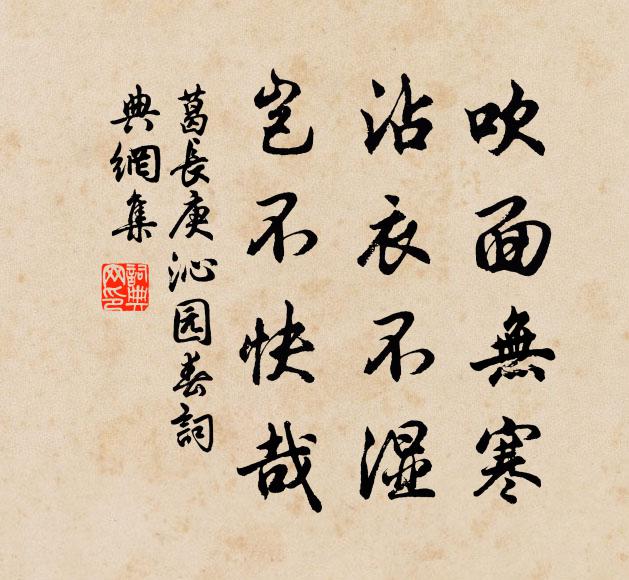 吹面無寒
沾衣不湿
岂不快哉
葛長庚沁园春詞
典網集
詞典
网印